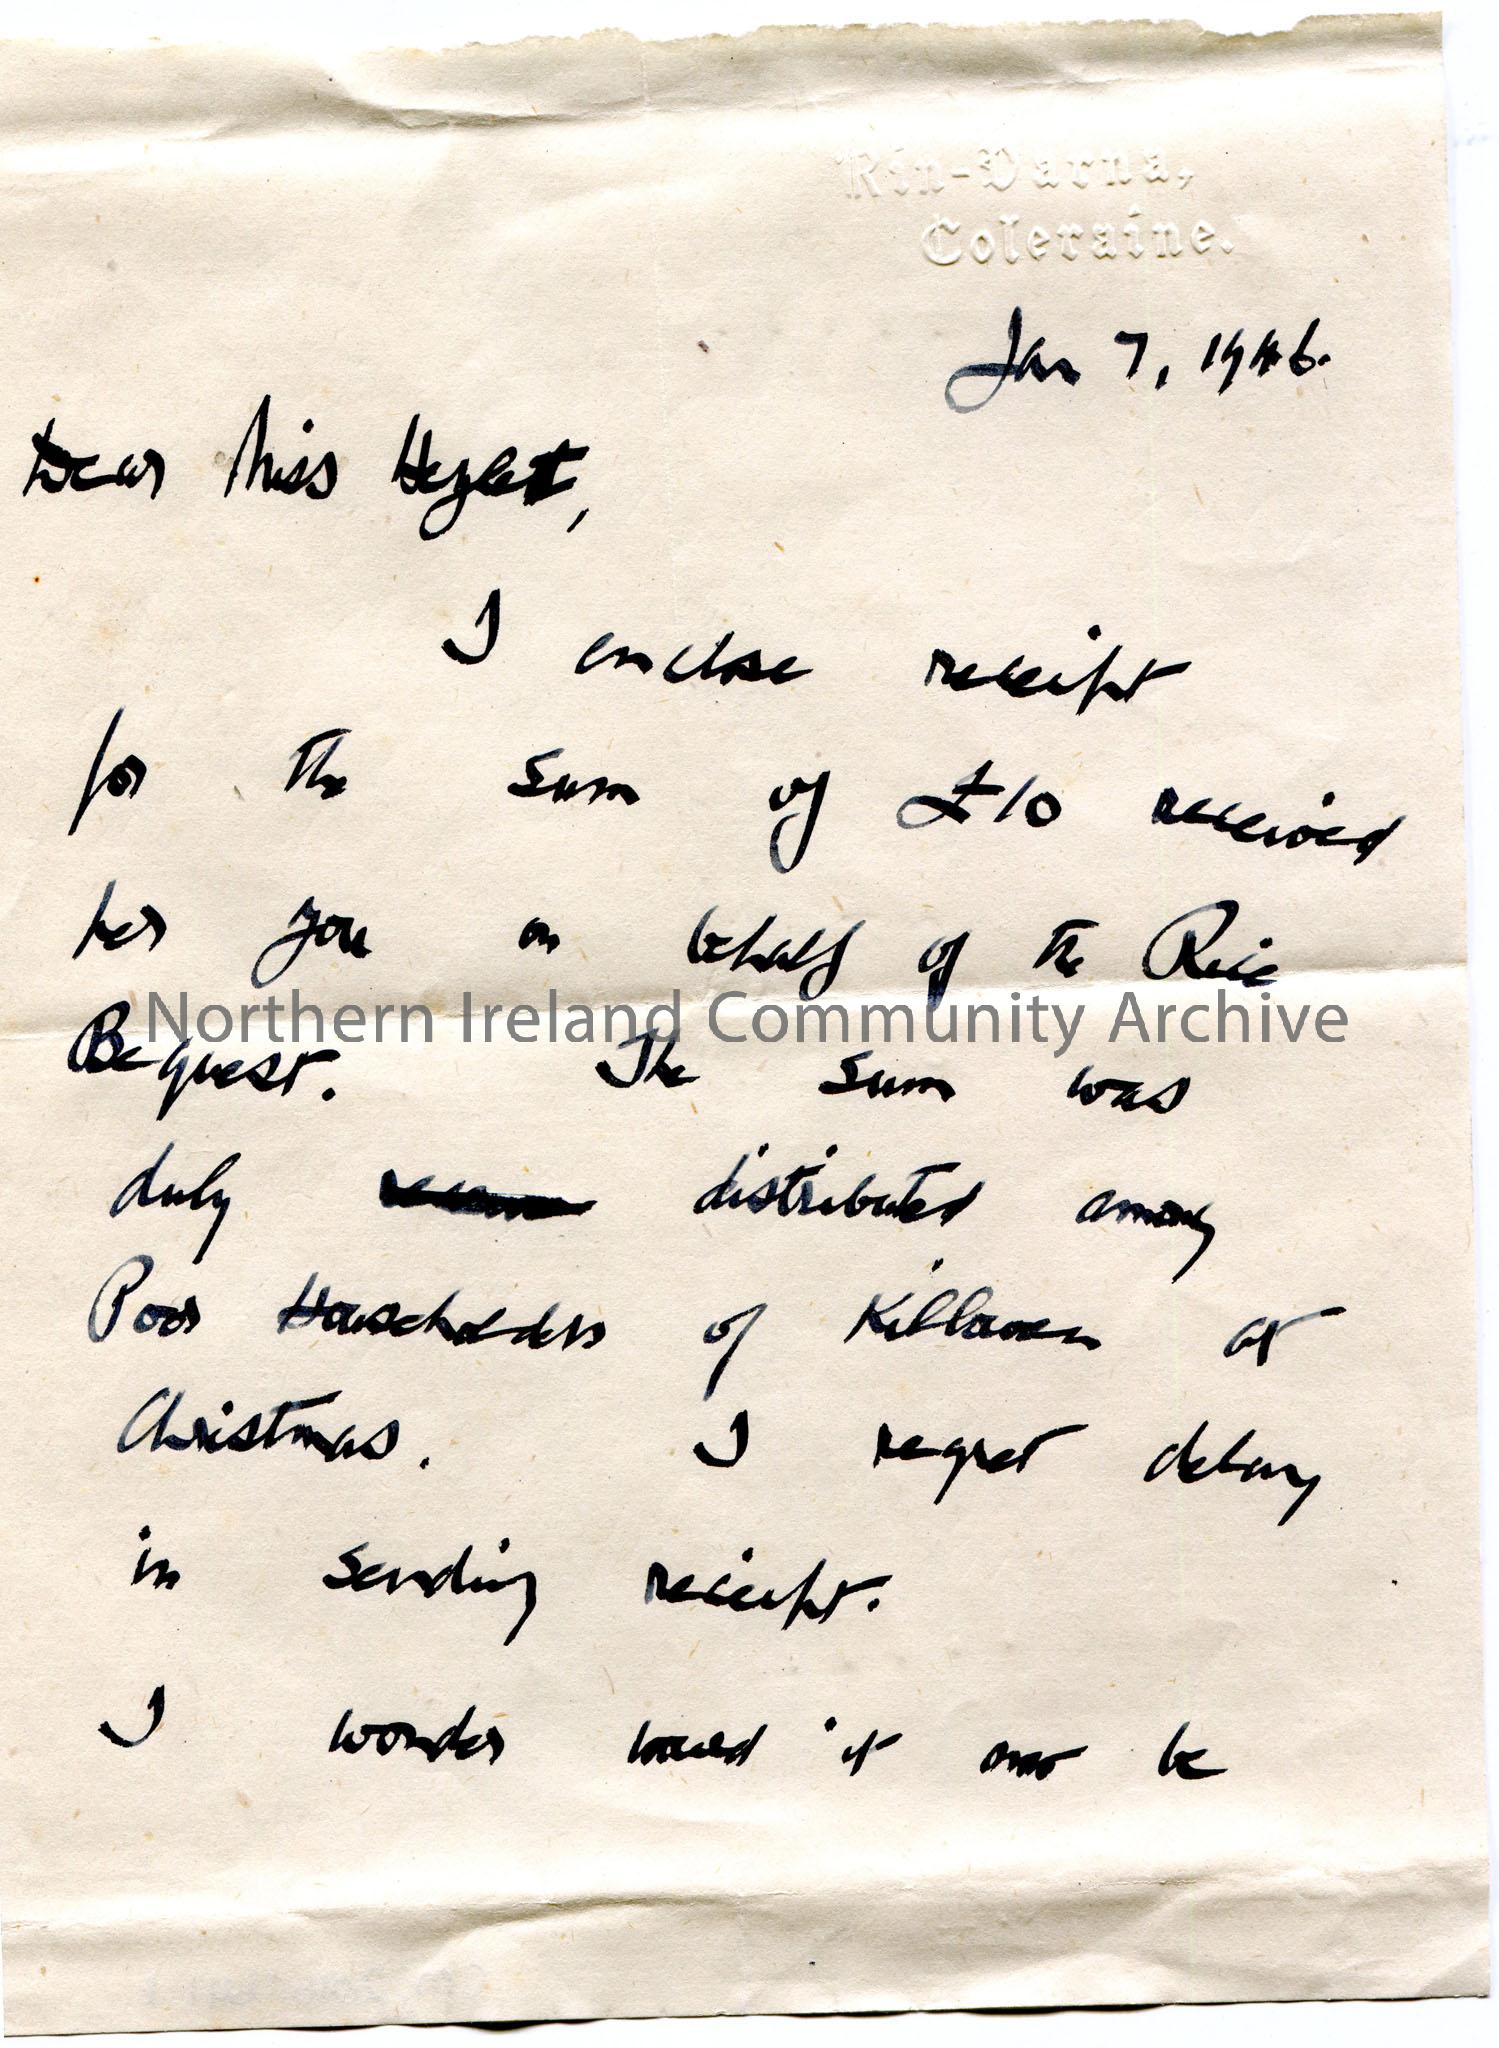 Rin-Varna,
Coleraine.
Jan 7, 1946.
Dear Miss Hezlett,
I enclose receipt
for the sum of £10 received
per you on behalf of the Rice
Northern Ireland Community Archive
Bequest. The sum was
duly distributed among
Poor Householders of Killowen at
Christmas. I regret delay
in sending receipt.
I wonder would it not be